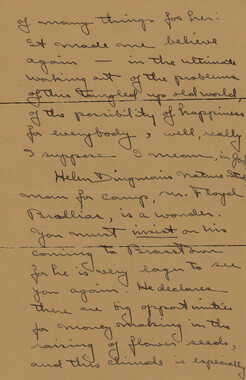 of many things for her.
It made me believe
again — in the ultimate
working out of the problems
of this tangled up old world,
of the possibility of happiness
for everybody, well, really
I suppose I mean, in God
Helen Dingman's nature study
man for camp, Mr. Floyd
Bralliar, is a wonder.
You must insist on his
coming to Brasstown
for he is very eager to see
you again. He declares
there are big opportunities
for money making in the
raising of flower seeds,
and this climate is especially